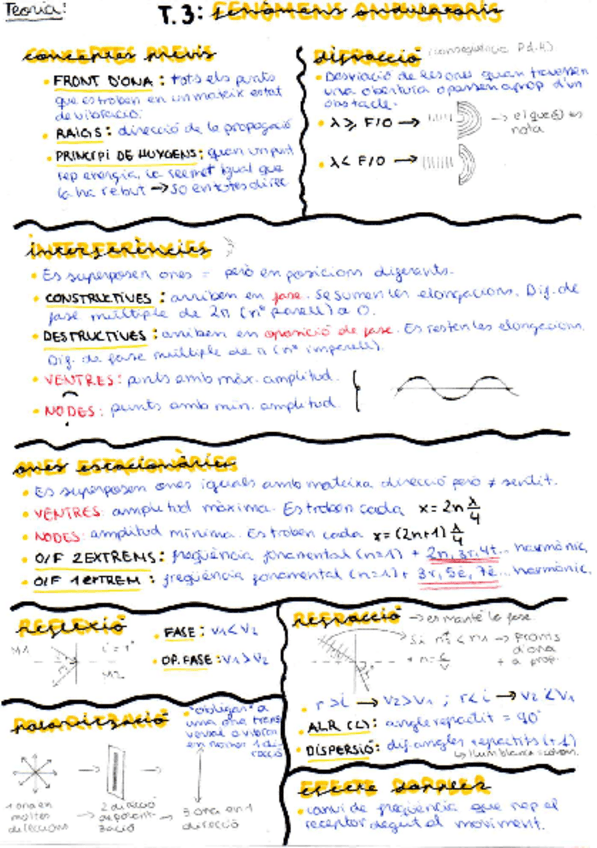 Teoria!
T.3: FENÒMENS ONDULATORIS
conceptes previs
FRONT D'ONA: tots els punts
que es troben en un mateix estat
de vibració.
RAIGS: direcció de la propagació
PRINCIPI DE HUYGENS: quan un punt
rep energia, la reemet igual que
la ha rebut → SO en totes direc
difracció (conseqüència P.d.H)
Desviació de les ones quan travessen
una obertura o passen aprop d'un
obstacle.
λ ≥ F/O → → el que (s) es
nota
λ < F/O →
interferències
Es superposen ones = però en posicions diferents.
CONSTRUCTIVES: arriben en fase. Se sumen les elongacions. Dif. de
fase múltiple de 2π (nº parell) a 0.
DESTRUCTIVES: arriben en oposició de fase. Es resten les elongacions.
Dif. de fase múltiple de π (nº imparell).
VENTRES: punts amb màx. amplitud.
NODES: punts amb min. amplitud.
ones estacionàries
Es superposen ones iguals amb mateixa direcció però ≠ sentit.
VENTRES: amplitud màxima. Es troben cada x=2n λ/4
NODES: amplitud mínima. Es troben cada x=(2n+1) λ/4
O/F 2 EXTREMS: freqüència fonamental (n=1) + 2n, 3r, 4t... harmònic.
O/F 1 EXTREM: freqüència fonamental (n=1) + 3r, 5è, 7è... harmònic.
reflexió
FASE: V1<V2
OP. FASE: V1>V2
M1
M2
refracció → es manté la fase
+ n = c/v
r>i → V2>V1 ; r<i → V2<V1
ALR (L): angle refractit = 90º
DISPERSIÓ: dif. angles refractits (+1)
polarització
"obligar" a
una ona trans
versal a vibrar
en només 1 di
recció
1 ona en
moltes
direccions
2 direcció
de polarit-
zació
3 ona en 1
direcció
efecte Doppler
canvi de freqüència que rep el
receptor degut al moviment.